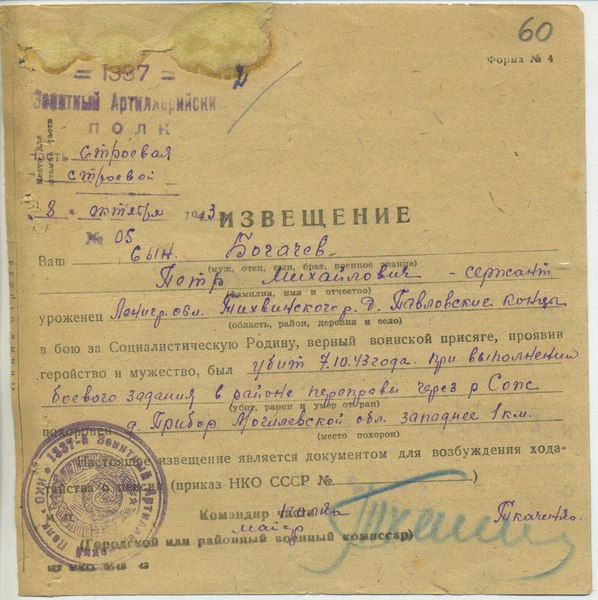 60
Форма № 4
= 1337 =
2
Зенитный Артиллерийски
ПОЛК
Место для
штампа части
Часть Строевая
строевой
8 октября 1943 г.
ИЗВЕЩЕНИЕ
№ 05
Ваш сын. Богачев
(муж, отец, сын, брат, военное звание)
Петр Михайлович - сержант
(фамилия, имя и отчество)
уроженец Ленигр. обл. Тихвинского р. д. Павловские концы
(область, район, деревня и село)
в бою за Социалистическую Родину, верный воинской присяге, проявив
геройство и мужество, был убит 7.10.43 года. при выполнении
боевого задания в районе переправы через р Сож
(убит, ранен и умер от ран)
похоронен д. Прибор Могилевской обл. западнее 1 км.
(место похорон)
Настоящее извещение является документом для возбуждения хода-
тайства о пенсии (приказ НКО СССР № )
Командир части
майор Ткаченко.
(Городской или районный военный комиссар)
НКО * 1337-й Зенитный Артиллерийский Полк *